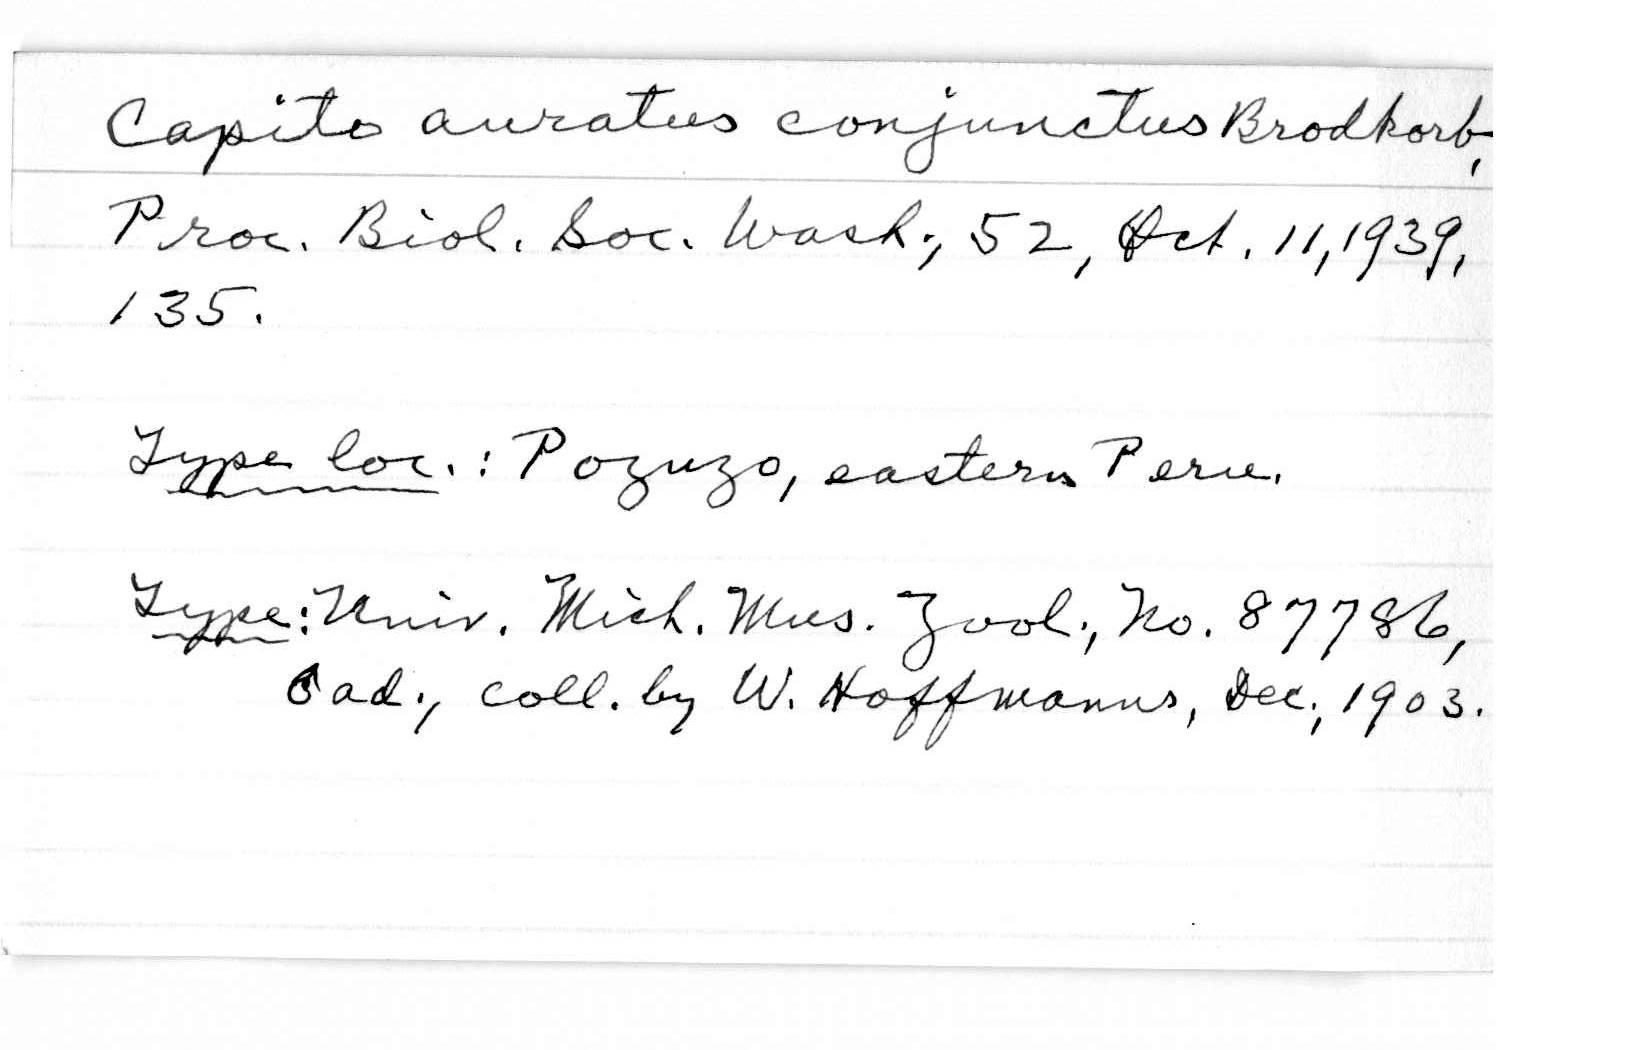 Capito auratus conjunctus Brodkorb,
Proc. Biol. Soc. Wash., 52, Oct. 11, 1939,
135.
Type loc.: Pozuzo, eastern Peru.
Type: Univ. Mich. Mus. Zool., No. 87786,
ad., coll. by W. Hoffmanns, Dec., 1903.